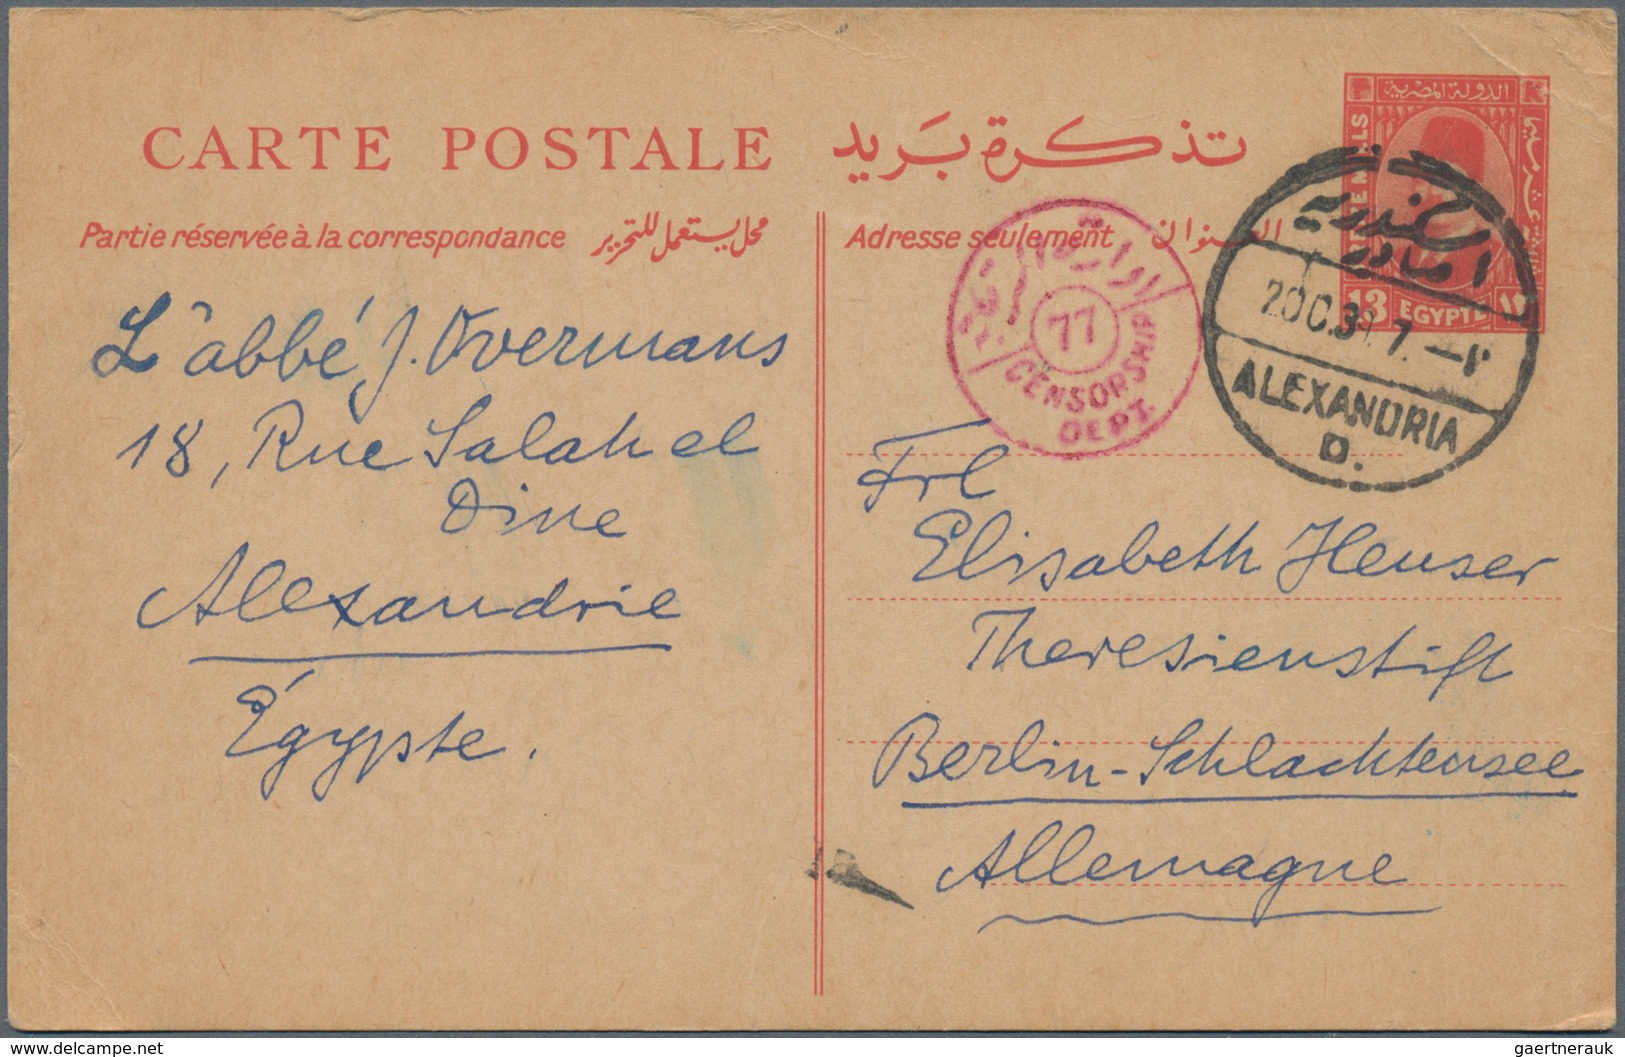 الدولة المصرية
CARTE POSTALE تذكرة بريد
Partie réservée à la correspondance محل يستعمل للتحرير
Adresse seulement العنوان
13 EGYPTE ١٣
77
CENSORSHIP
DEPT.
اسكندرية
ALEXANDRIA
D.
L'abbé J. Overmans
18, Rue Salah el
Dine
Alexandrie
Égypte.
Frl
Elisabeth Heuser
Theresienstift
Berlin-Schlachtensee
Allemagne
www.delcampe.net
gaertnerauk